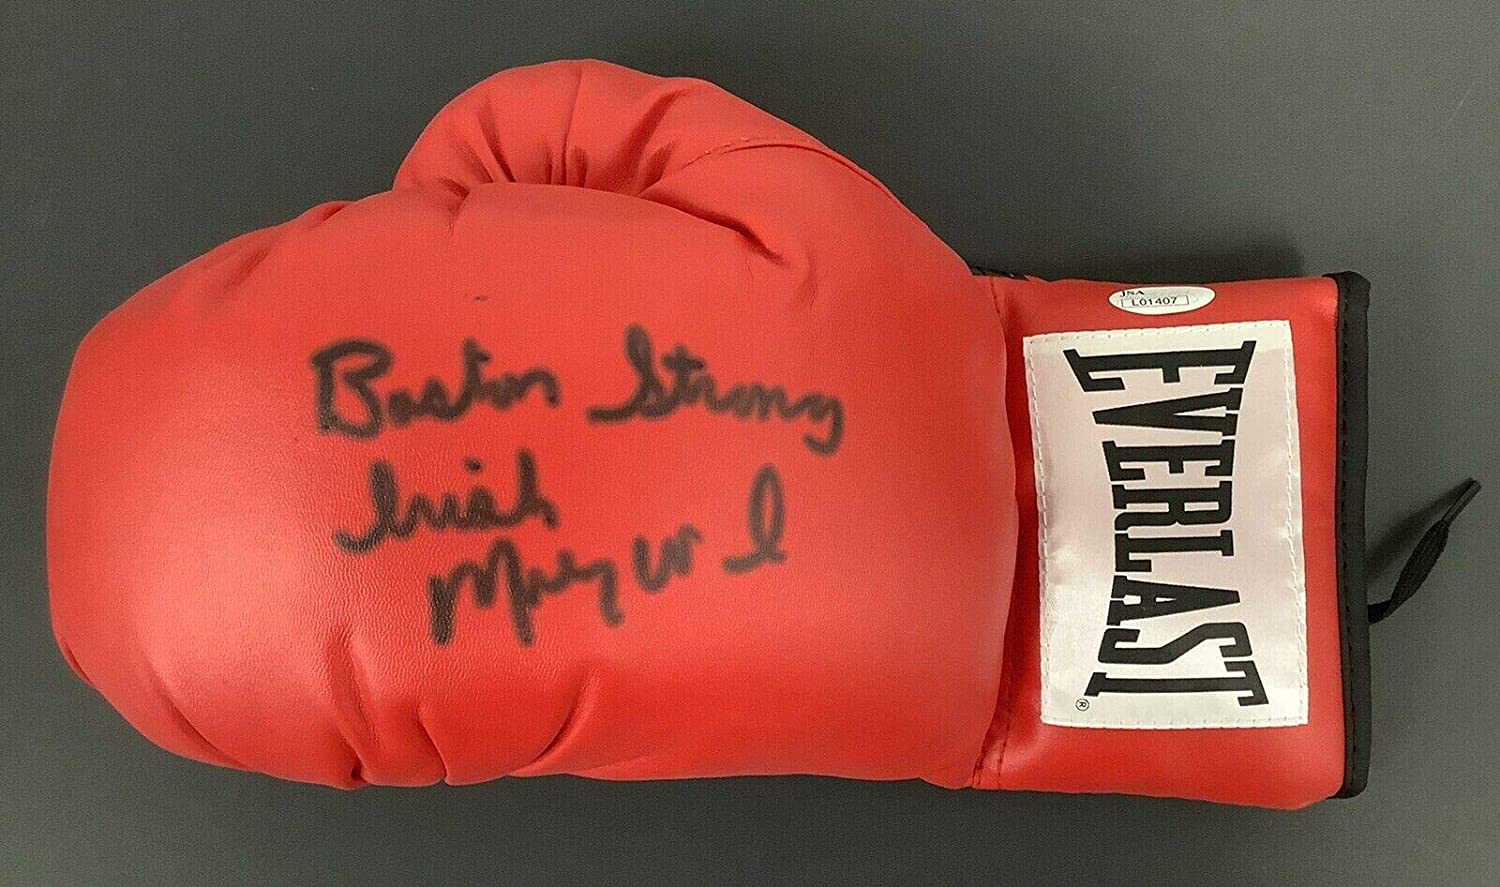 Boston Strong
Irish
Micky Wd
JSA
L01407
EVERLAST
®